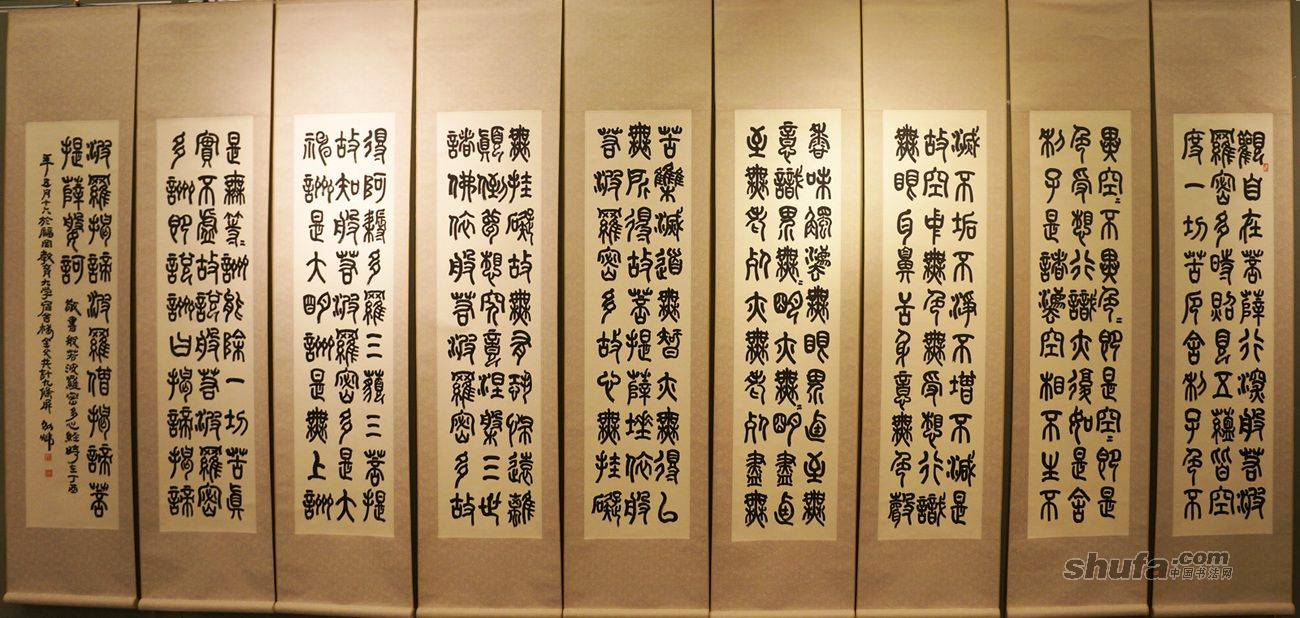 觀自在菩薩行深般若波
羅密多時照見五蘊皆空
度一切苦厄舍利子色不
異空〻不異色〻即是空〻即是
色受想行識亦復如是舍
利子是諸法空相不生不
滅不垢不淨不增不減是
故空中無色無受想行識
無眼耳鼻舌身意無色聲
香味觸法無眼界乃至無
意識界無〻明亦無〻明盡乃
至無老死亦無老死盡無
苦集滅道無智亦無得以
無所得故菩提薩埵依般
若波羅密多故心無挂礙
無挂礙故無有恐怖遠離
顛倒夢想究竟涅槃三世
諸佛依般若波羅密多故
得阿耨多羅三藐三菩提
故知般若波羅密多是大
神咒是大明咒是無上咒
是無等〻咒能除一切苦真
實不虛故說般若波羅密
多咒即說咒曰揭諦揭諦
波羅揭諦波羅僧揭諦菩
提薩婆訶 敬書般若波羅密多心經時在丁酉
年五月十六於福岡教育大学宿舍樓全文共計九條屏
shufa.com
中国书法网